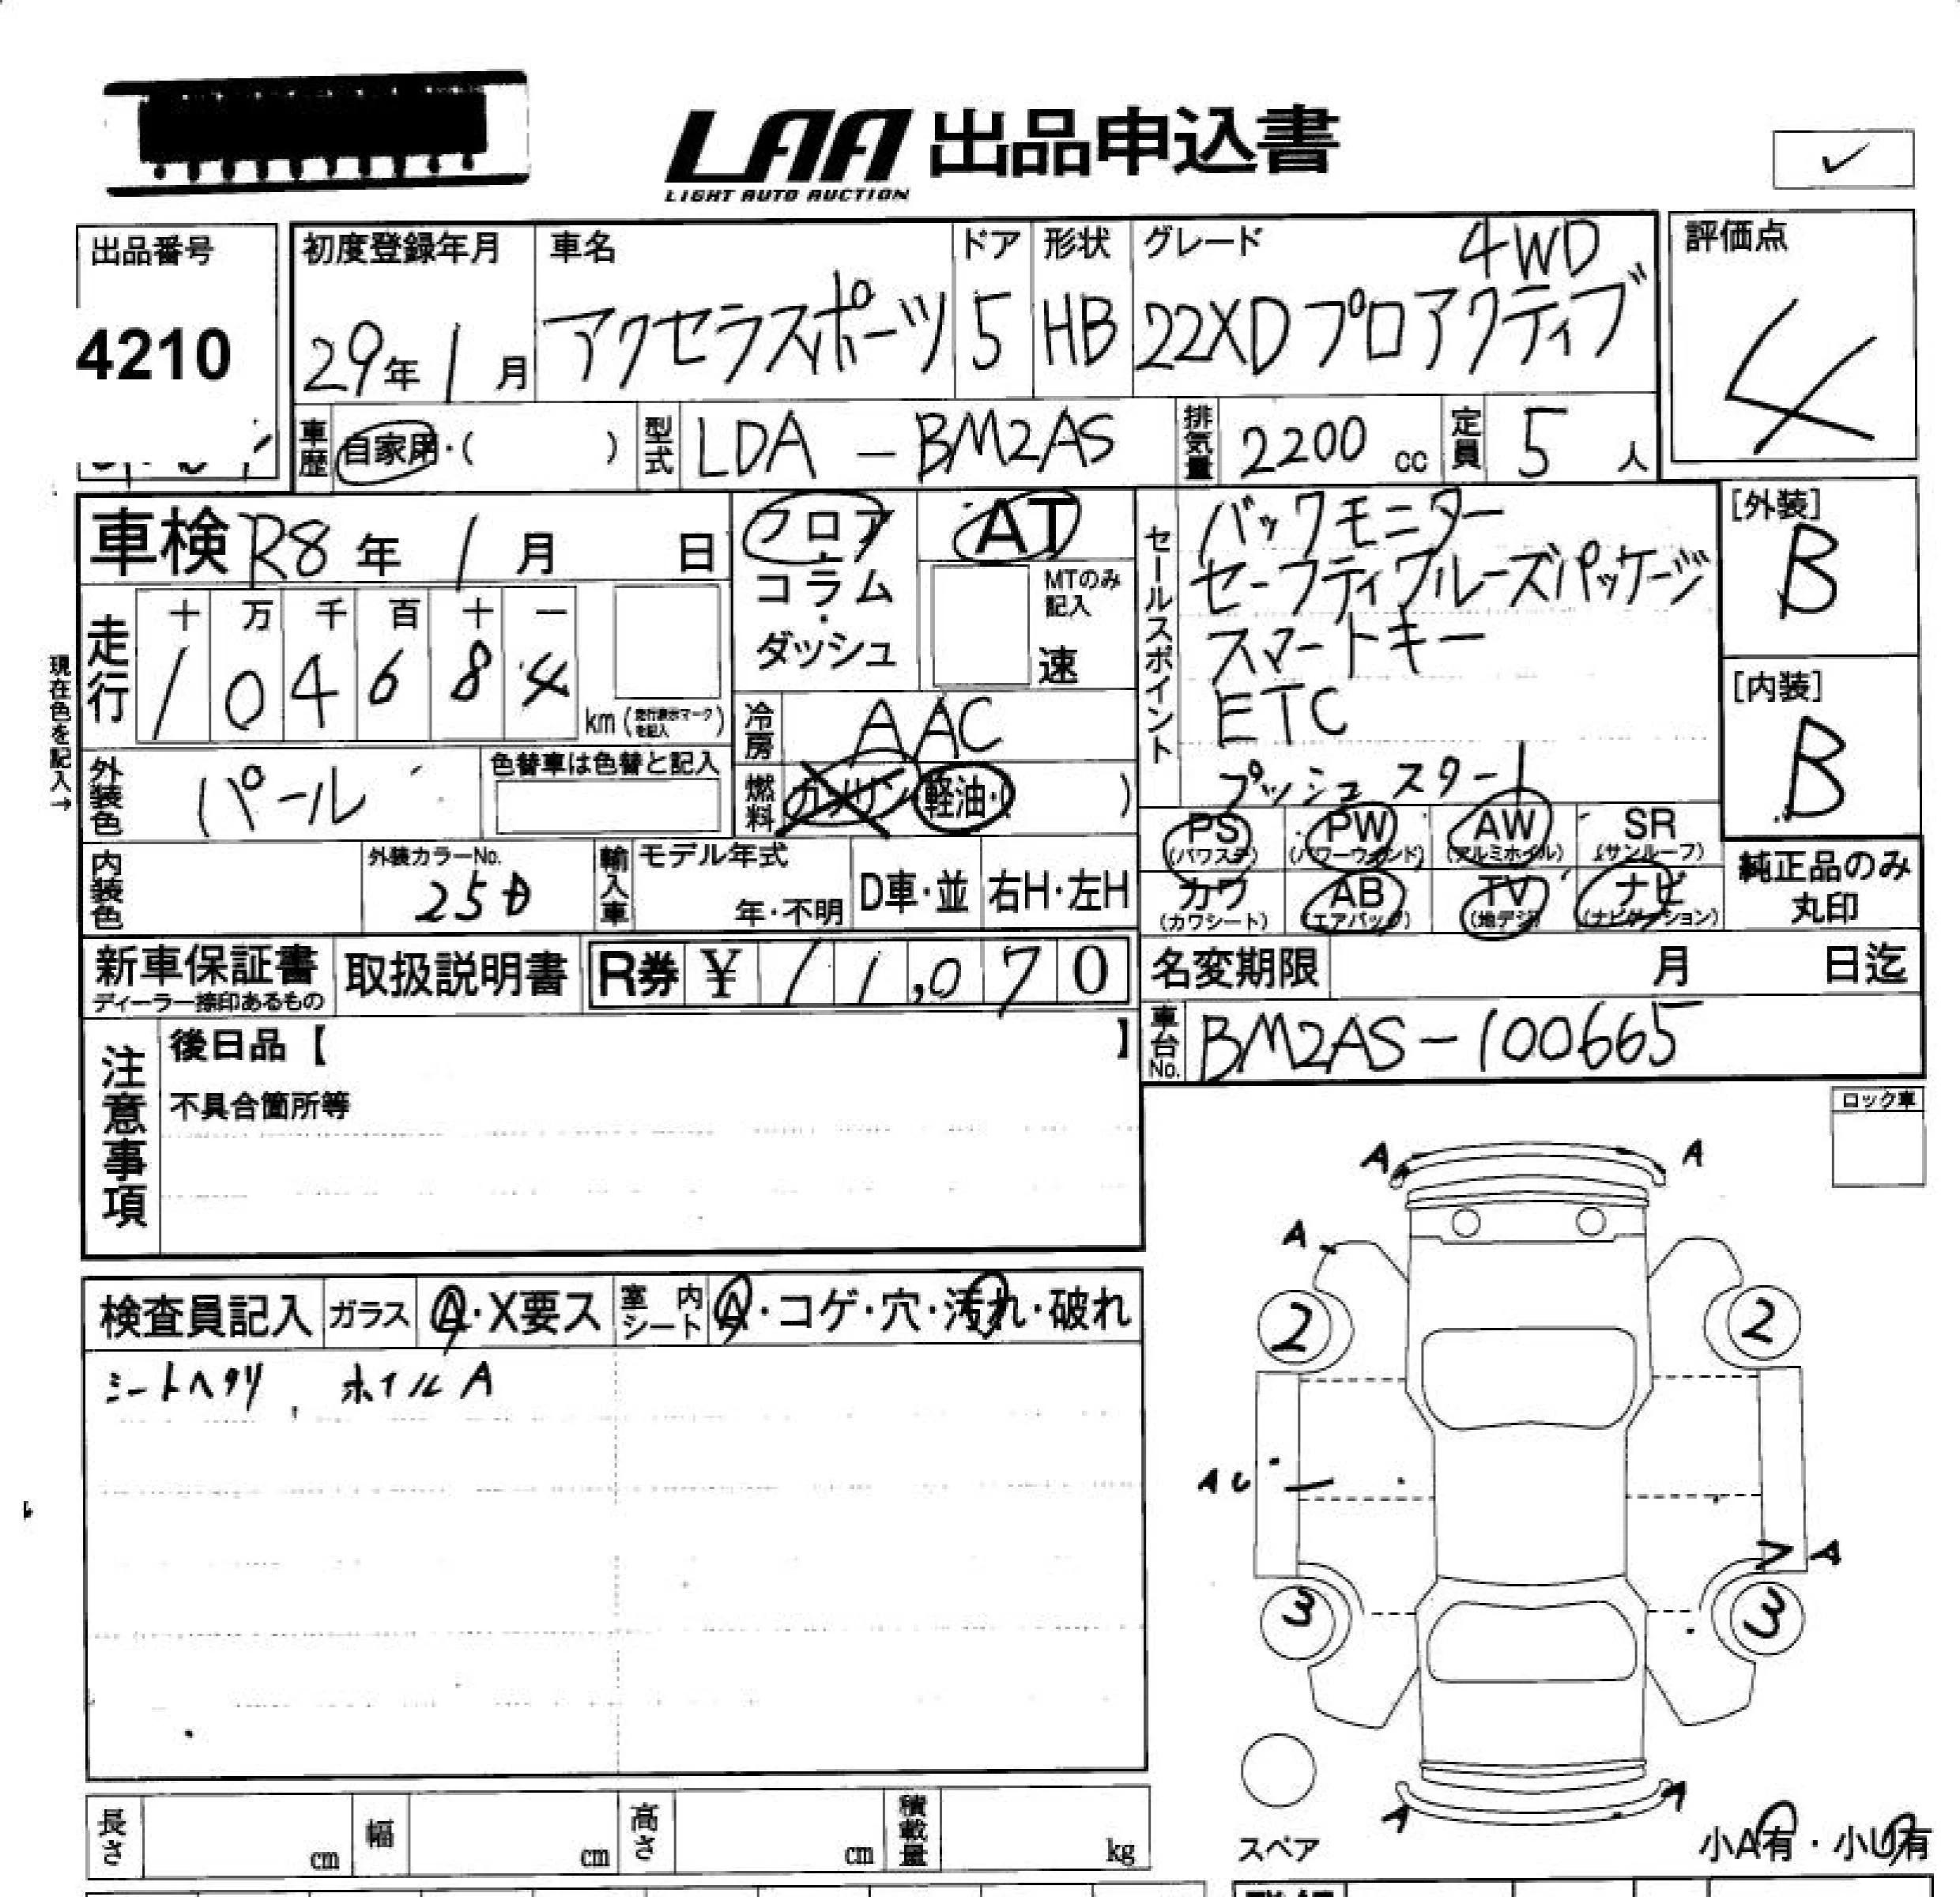 LAA 出品申込書
LIGHT AUTO AUCTION
✓
出品番号
4210
初度登録年月
29年1月
車名
アクセラスポーツ
ドア
5
形状
HB
グレード
4WD
22XDプロアクティブ
評価点
4
車歴 自家用・( )
型式 LDA-BM2AS
排気量 2200 cc
定員 5 人
車検 R8年 1月 日
フロア・コラム・ダッシュ
AT
MTのみ記入
速
セールスポイント
バックモニター
セーフティクルーズパッケージ
スマートキー
ETC
プッシュスタート
[外装]
B
[内装]
B
現在色を記入→
走行
十 万 千 百 十 一
1 0 4 6 8 4
km (走行表示マークを記入)
冷房 AAC
燃料 ガソリン・軽油・( )
外装色 パール
色替車は色替と記入
PS (パワステ)
PW (パワーウィンド)
AW (アルミホイル)
SR (サンルーフ)
カワ (カワシート)
AB (エアバッグ)
TV (地デジ)
ナビ (ナビゲーション)
純正品のみ丸印
内装色
外装カラーNo.
25D
輸入車
モデル年式
年・不明
D車・並
右H・左H
新車保証書
ディーラー捺印あるもの
取扱説明書
R券 ¥ 11,070
名変期限 月 日迄
車台No. BM2AS-100665
注意事項
後日品【 】
不具合箇所等
ロック車
検査員記入
ガラス A・X要ス
室内シート A・コゲ・穴・汚れ・破れ
シートヘタリ、ホイルA
A A
A
2 2
AU
A
3 3
A A
スペア
小A有・小U有
長さ cm
幅 cm
高さ cm
積載量 kg